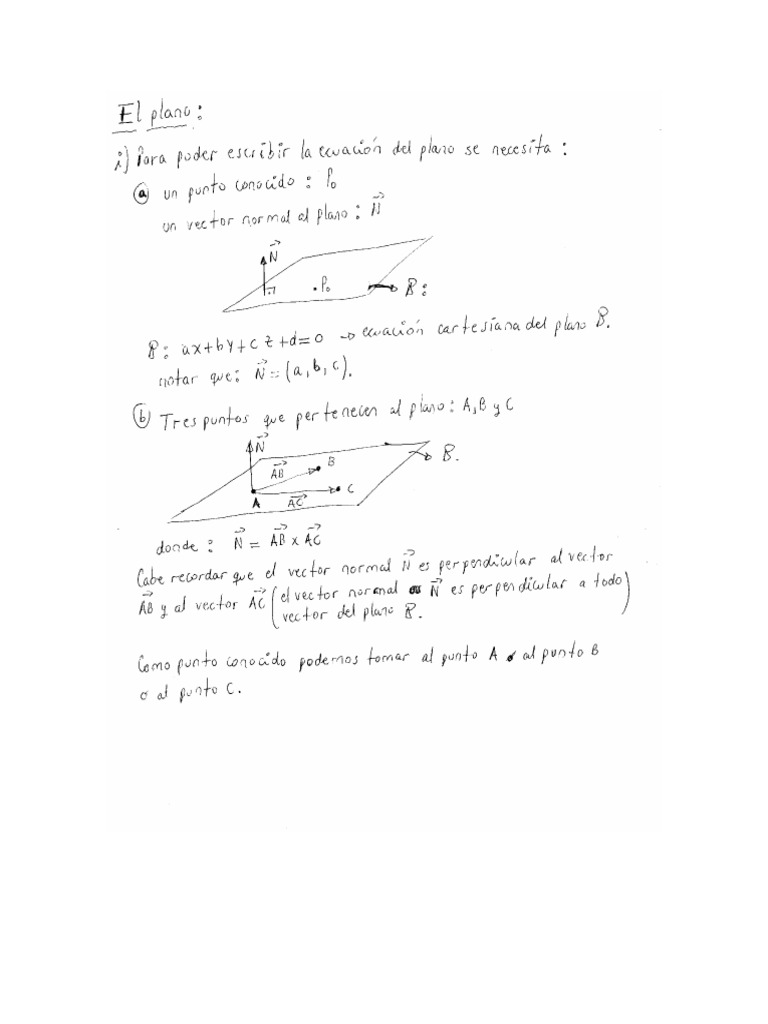 El plano:
i) Para poder escribir la ecuación del plano se necesita:
ⓐ un punto conocido: P₀
un vector normal al plano: N⃗
N⃗
P₀
P:
P: ax+by+cz+d=0 → ecuación cartesiana del plano P.
notar que: N⃗=(a,b,c).
ⓑ Tres puntos que pertenecen al plano: A,B y C
N⃗
AB⃗
B
P.
AC⃗
C
A
donde: N⃗ = AB⃗ x AC⃗
Cabe recordar que el vector normal N⃗ es perpendicular al vector
AB⃗ y al vector AC⃗ (el vector normal N⃗ es perpendicular a todo
vector del plano P.)
Como punto conocido podemos tomar al punto A o al punto B
o al punto C.